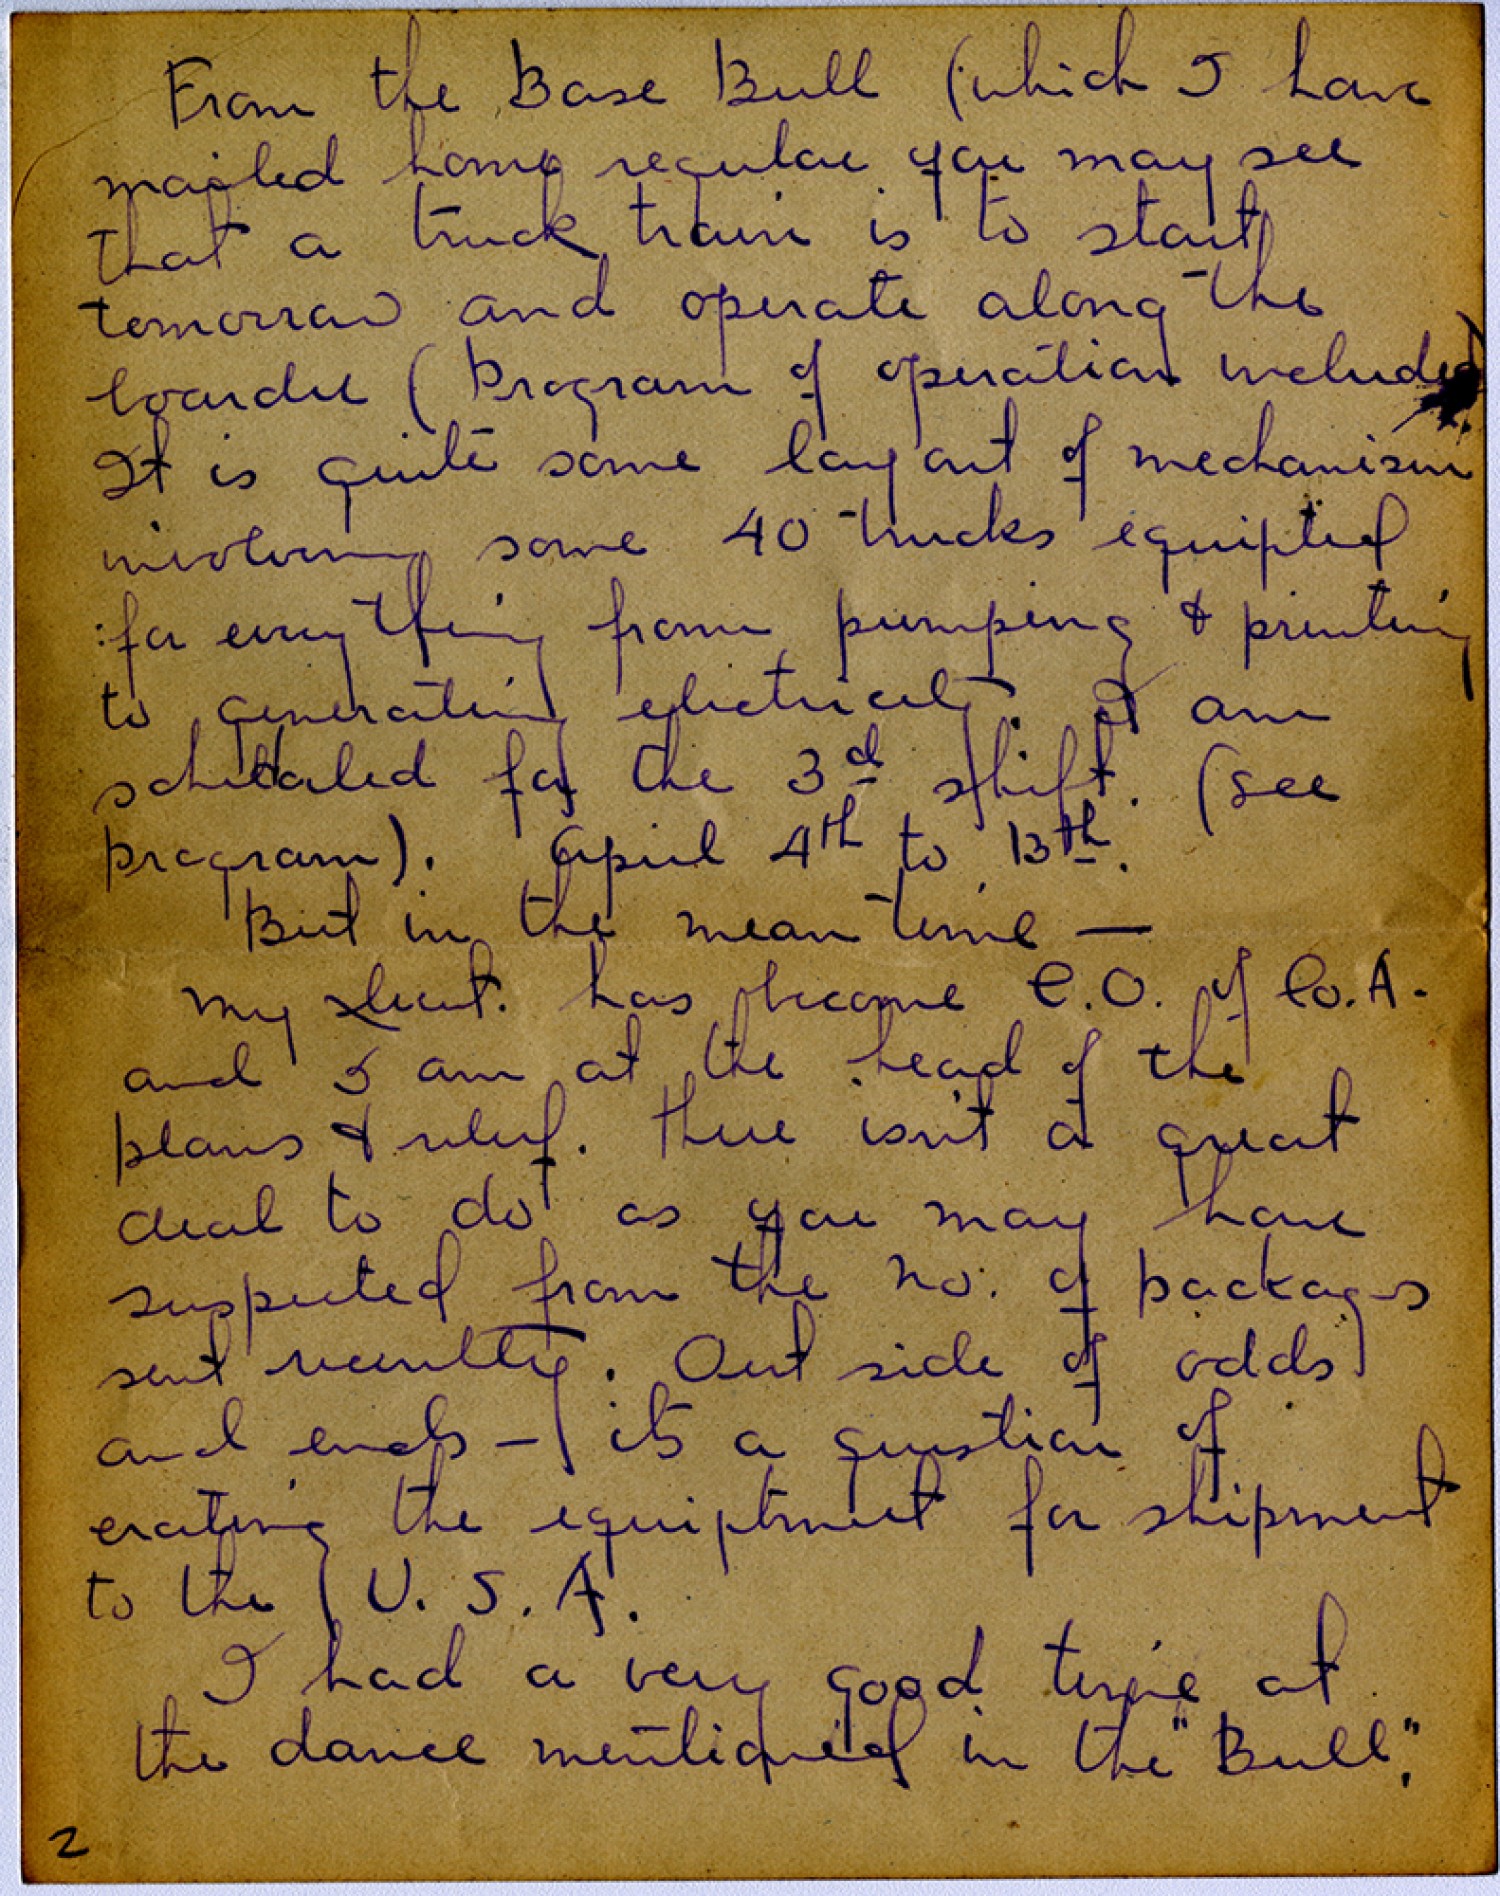 From the Base Bull (which I have
mailed home regular you may see
that a truck train is to start
tomorrow and operate along the
boarder (Program of operation included)
It is quite some lay out of mechanism
involving some 40 trucks equipted
for everything from pumping & printing
to generating electricity. I am
scheduled for the 3d shift. (see
program). April 4th to 13th.
But in the mean time —
My Lieut. has become C.O. of Co. A.
and I am at the head of the
plans & relief. There isn't a great
deal to do as you may have
suspected from the no. of packages
sent recently. Out side of odds
and ends — its a question of
crating the equiptment for shipment
to the U. S. A.
I had a very good time at
the dance mentioned in the "Bull".
2